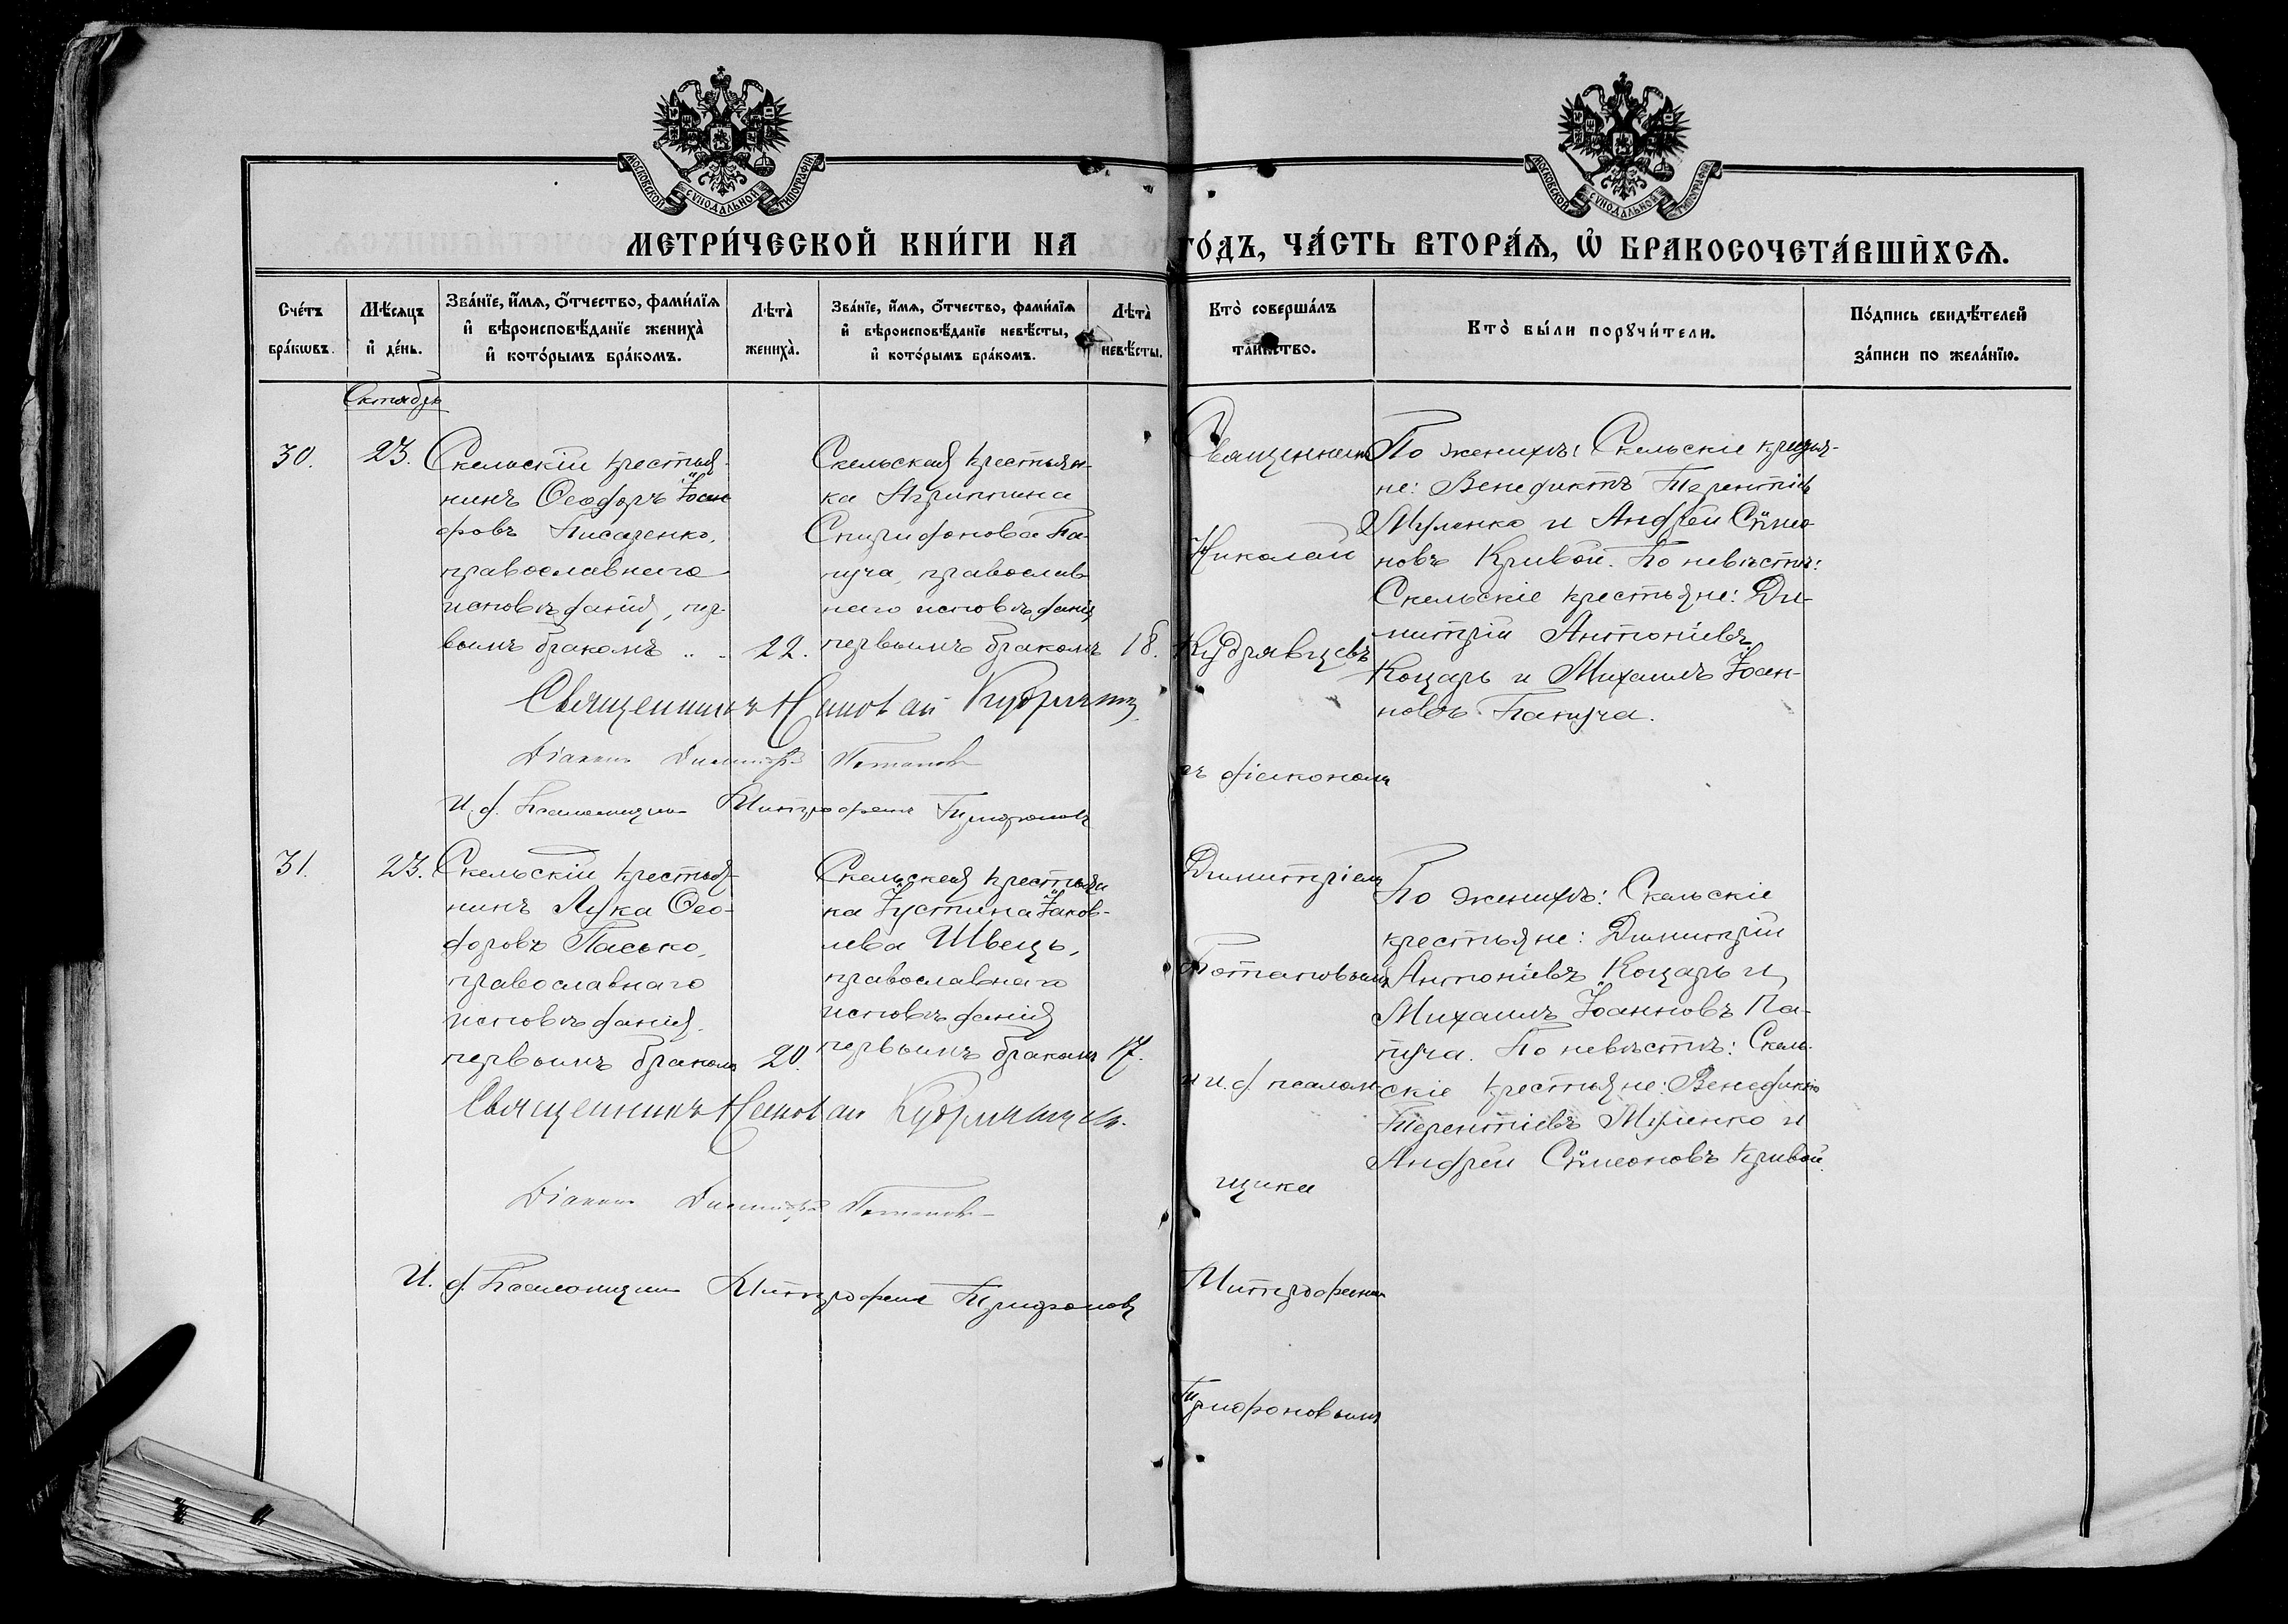 МОСКОВСКОЙ СѴНОДАЛЬНОЙ ТИПОГРАФІИ
МОСКОВСКОЙ СѴНОДАЛЬНОЙ ТИПОГРАФІИ
МЕТРИ́ЧЕСКОЙ КНИ́ГИ НА ГО́ДЪ, ЧА́СТЬ ВТОРА́Ѧ, Ѡ҆ БРАКОСОЧЕТА́ВШИХСѦ.
Сче́тъ
бра́кωвъ.
Мѣ́сяцъ
и҆ де́нь.
Зва́нїе, и҆́мѧ, ѻ҆́тчество, фами́лїѧ
и҆ вѣроисповѣ́данїе жениха̀
и҆ кото́рымъ бра́комъ.
Лѣта̀
жениха̀.
Зва́нїе, и҆́мѧ, ѻ҆́тчество, фами́лїѧ
и҆ вѣроисповѣ́данїе невѣ́сты,
и҆ кото́рымъ бра́комъ.
Лѣта̀
невѣ́сты.
Кто̀ соверша́лъ
та́инство.
Кто̀ бы́ли порꙋчи́тели.
По́дпись свидѣ́телей
за́писи по жела́нїю.
Октябрь
30.
23.
Скельскій крестья-
нинъ Ѳеодоръ Іоан
новъ Писаренко,
православнаго
исповѣданія, пер-
вымъ бракомъ
22.
Скельская крестьян-
ка Агриппина
Спиридонова Па-
пуча, православ
наго исповѣданія
первымъ бракомъ
18.
Священникъ
Николай
Кудрявцевъ
съ діакономъ
Димитріемъ
Потаповымъ
и и. д. псалом-
щика
Митрофаномъ
Трифоновымъ
По женихѣ: Скельскіе крестья-
не: Венедиктъ Терентіевъ
Муленко и Андрей Сѵмео-
новъ Кривой. По невѣстѣ:
Скельскіе крестьяне: Ди-
митрій Антоніевъ
Коцарь и Михаилъ Іоан-
новъ Папуча.
Священникъ Николай Кудрявцевъ
Діаконъ Димитрій Потаповъ
И. д. Псаломщика Митрофанъ Трифоновъ
31.
23.
Скельскій крестья-
нинъ Лука Ѳео-
доровъ Пасько,
православнаго
исповѣданія,
первымъ бракомъ
20.
Скельская крестьян
ка Іустина Іаков-
лева Швець,
православнаго
исповѣданія
первымъ бракомъ
17.
По женихѣ: Скельскіе
крестьяне: Димитрій
Антоніевъ Коцарь и
Михаилъ Іоанновъ Па-
пуча. По невѣстѣ: Скель-
скіе крестьяне: Венедиктъ
Терентіевъ Муленко и
Андрей Сѵмеоновъ Кривой.
Священникъ Николай Кудрявцевъ.
Діаконъ Димитрій Потаповъ
И. д. Псаломщика Митрофанъ Трифоновъ